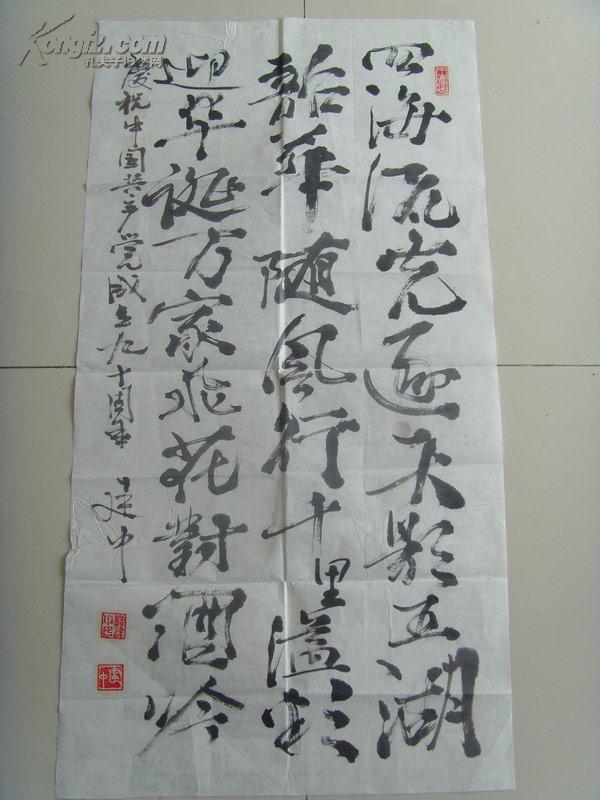 四海流光逐天影五湖
韶華随风行十里溢彩
迎华诞万家飛花對酒吟
慶祝中国共产党成立九十周年 建中
Kongfz.com
孔夫子旧书网